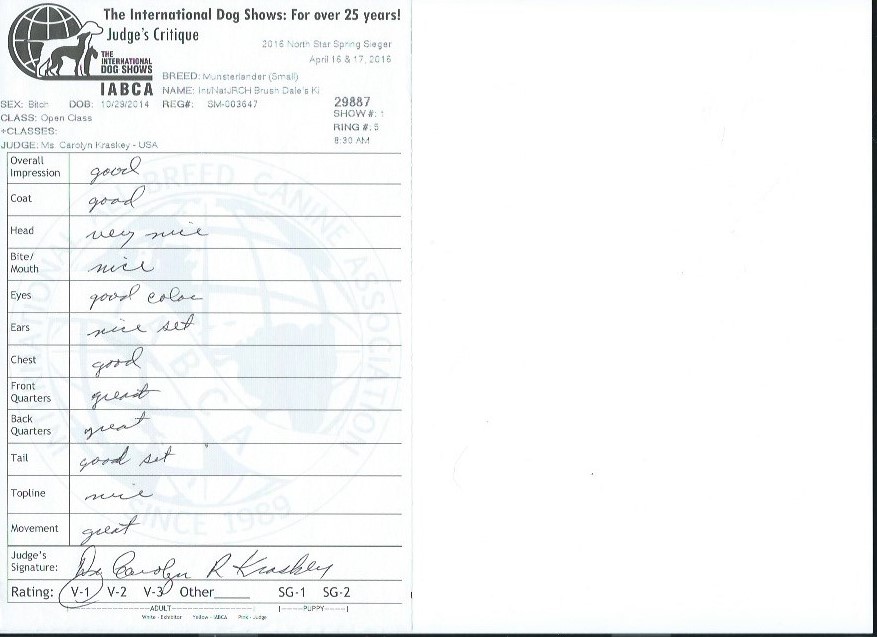 The International Dog Shows: For over 25 years!
Judge's Critique
THE
INTERNATIONAL
DOG SHOWS
IABCA
2016 North Star Spring Sieger
April 16 & 17, 2016
BREED: Munsterlander (Small)
NAME: Int/Nat/RCH Brush Dale's Ki
SEX: Bitch DOB: 10/29/2014 REG#: SM-003647
29887
CLASS: Open Class
SHOW #: 1
+CLASSES:
RING #: 5
JUDGE: Ms. Carolyn Kraskey - USA
8:30 AM
Overall Impression good
Coat good
Head very nice
Bite/ Mouth nice
Eyes good color
Ears nice set
Chest good
Front Quarters great
Back Quarters great
Tail good set
Topline nice
Movement great
Judge's Signature: Carolyn R Kraskey
Rating: V-1 V-2 V-3 Other_____ SG-1 SG-2
ADULT PUPPY
White - Exhibitor Yellow - IABCA Pink - Judge
INTERNATIONAL ALL BREED CANINE ASSOCIATION
IABCA
SINCE 1989